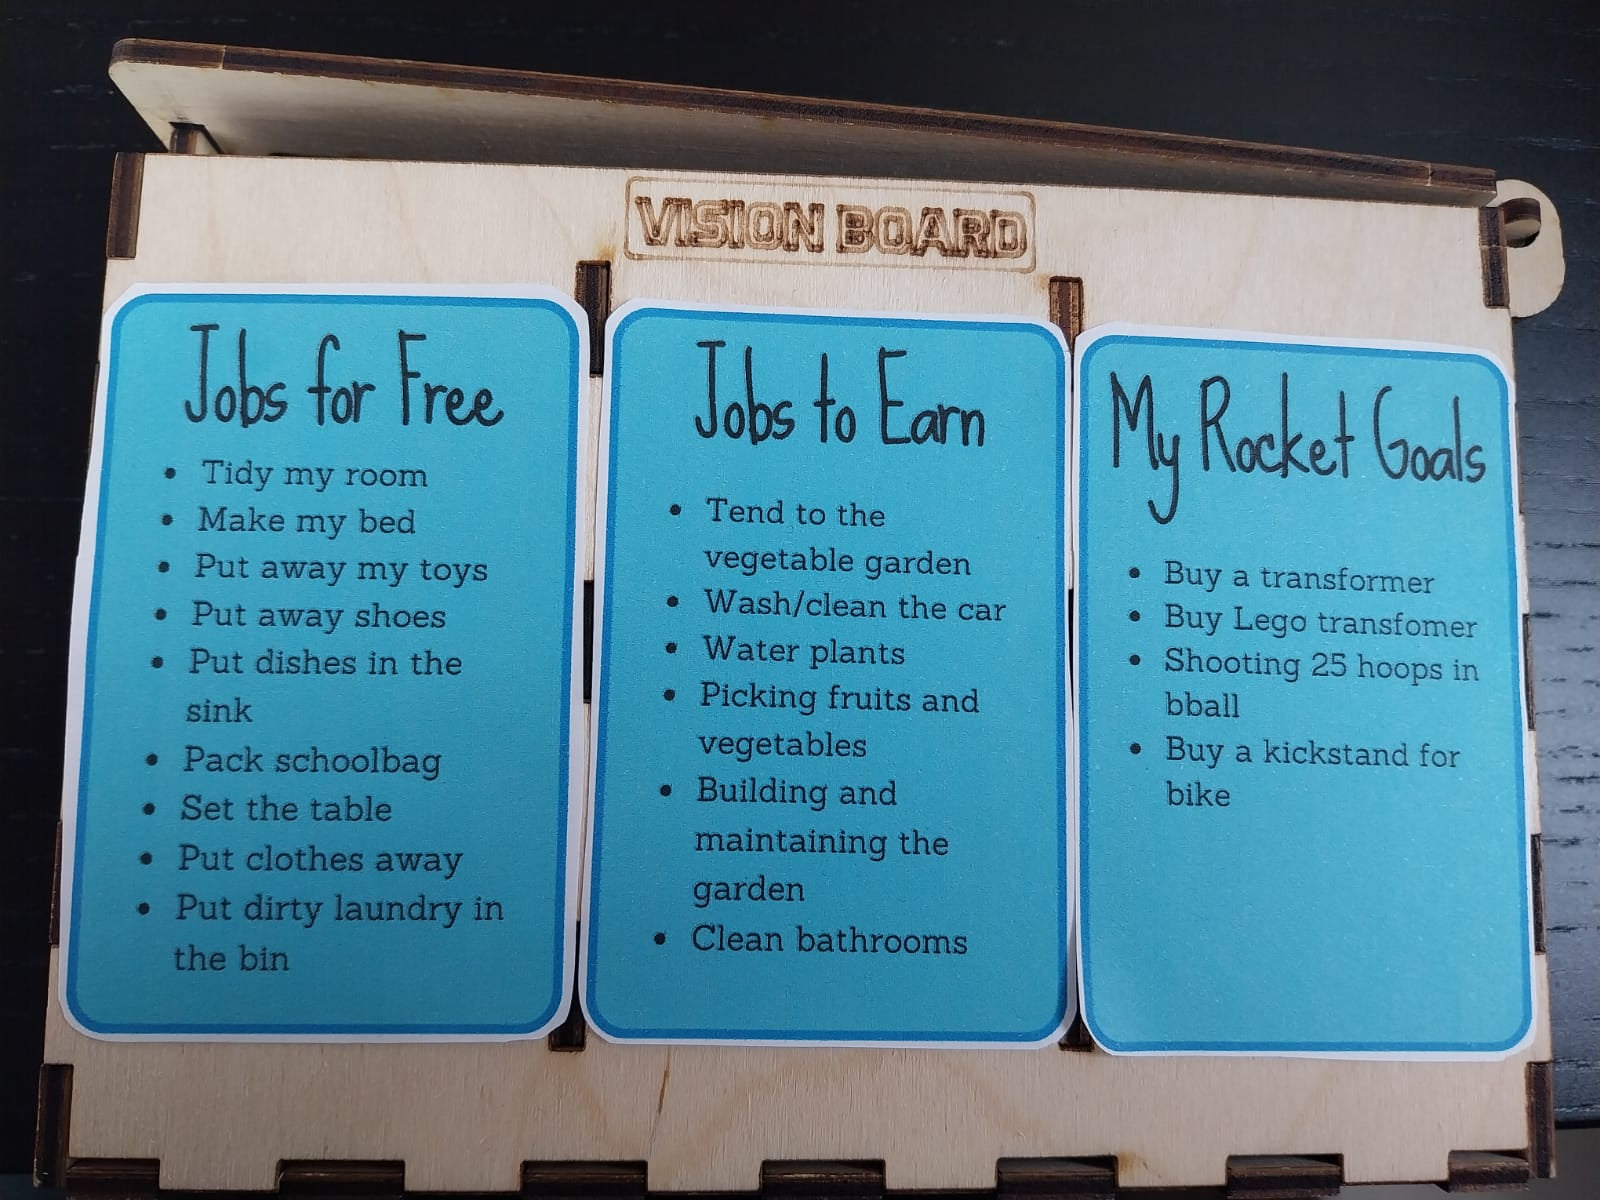 VISION BOARD
Jobs for Free
• Tidy my room
• Make my bed
• Put away my toys
• Put away shoes
• Put dishes in the
sink
• Pack schoolbag
• Set the table
• Put clothes away
• Put dirty laundry in
the bin
Jobs to Earn
• Tend to the
vegetable garden
• Wash/clean the car
• Water plants
• Picking fruits and
vegetables
• Building and
maintaining the
garden
• Clean bathrooms
My Rocket Goals
• Buy a transformer
• Buy Lego transfomer
• Shooting 25 hoops in
bball
• Buy a kickstand for
bike